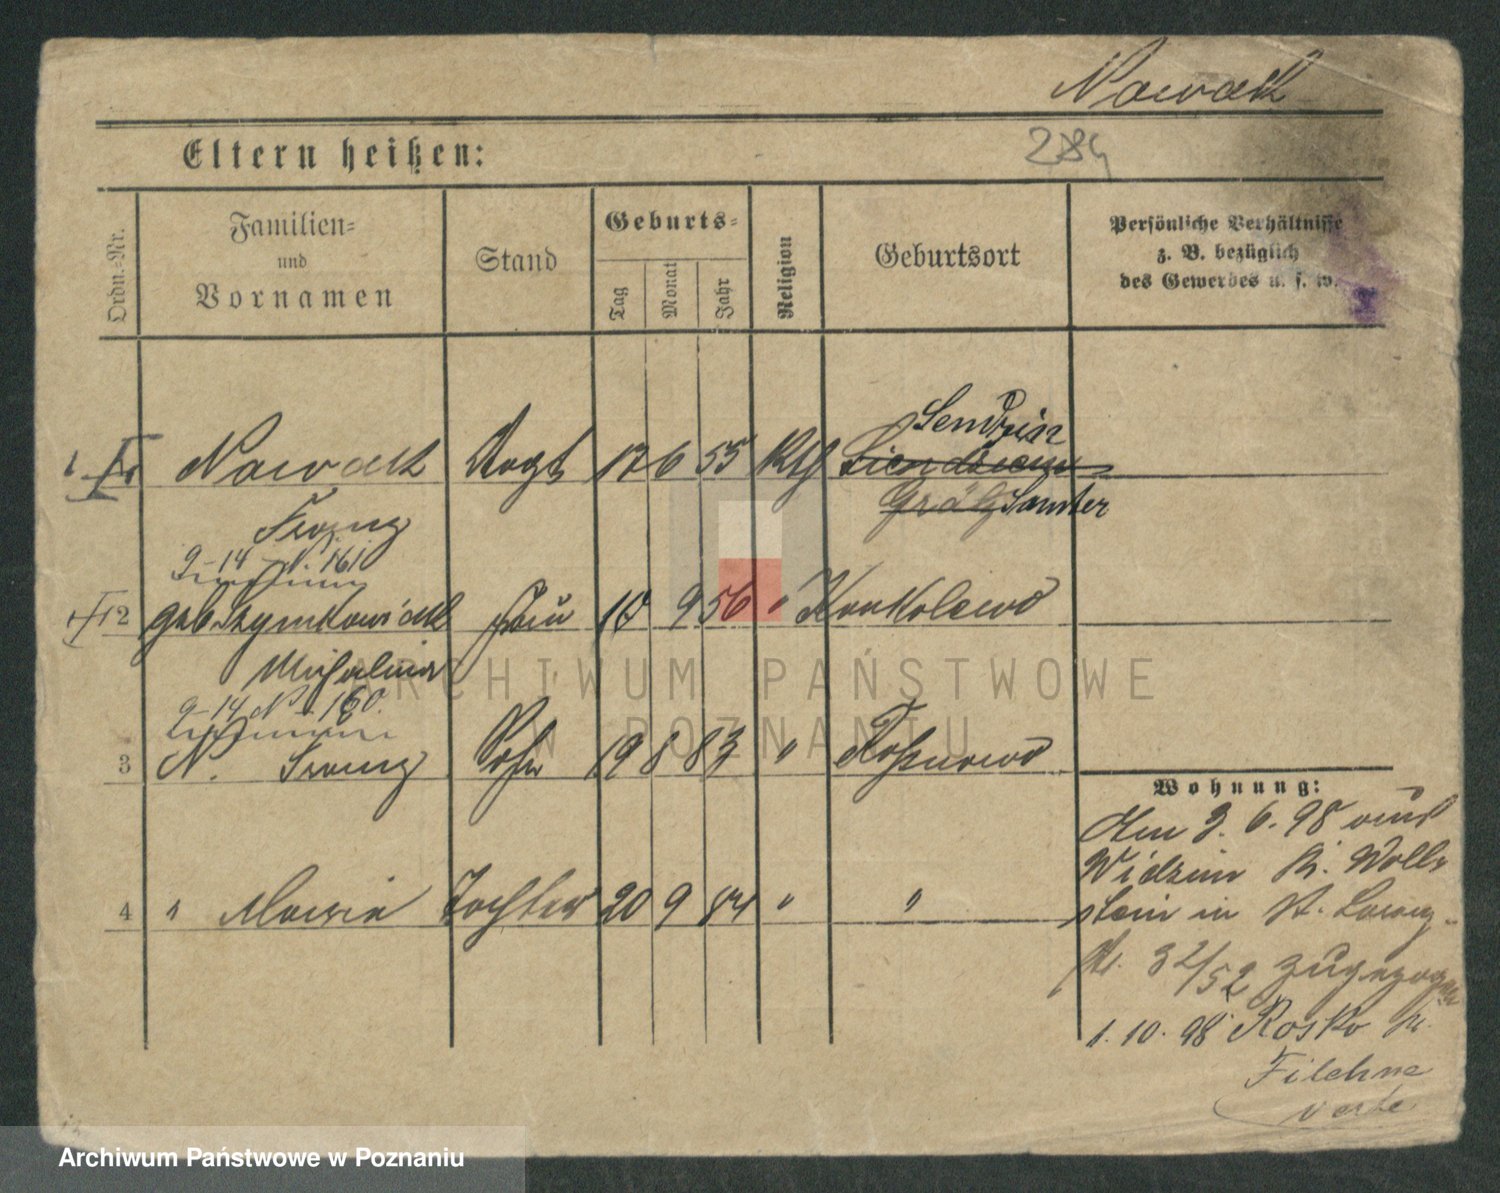 Nowack
284
Eltern heißen:
Ordn.-Nr.
Familien-
und
Vornamen
Stand
Geburts-
Tag
Monat
Jahr
Religion
Geburtsort
Persönliche Verhältnisse
z. B. bezüglich
des Gewerbes u. s. w.
1 Nowack Vogt 17 6 55 Kth Sendzin
Grätz Samter
Franz
9-14 N. 161
2 geb. Szymkowiack Frau 10 9 56 " Konkolewo
Michalina
9-14 N. 160.
3 N. Franz Sohn 19 8 83 "
4 " Maria Tochter 20 9 84 " "
Wohnung:
Am 3. 6. 98 aus
Widzim Kr. Woll-
stein in St. Lazarz-
str. 32/52 zugezogen
1. 10. 98 Rosko Kr.
Filehne
verte
ARCHIWUM PAŃSTWOWE
W POZNANIU
Archiwum Państwowe w Poznaniu